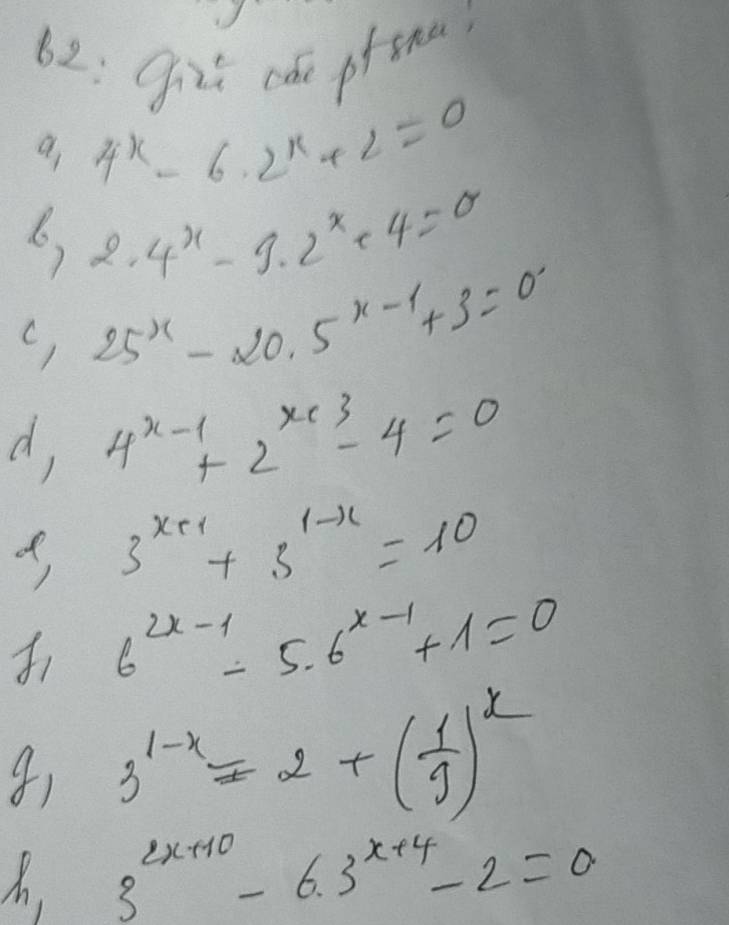 b2: Giải các pt sau:
a, 4^x - 6.2^x + 2 = 0
b, 2.4^x - 9.2^x + 4 = 0
c, 25^x - 20.5^{x-1} + 3 = 0
d, 4^{x-1} + 2^{x+3} - 4 = 0
e, 3^{x+1} + 3^{1-x} = 10
f, 6^{2x-1} - 5.6^{x-1} + 1 = 0
g, 3^{1-x} = 2 + (1/9)^x
h, 3^{2x+10} - 6.3^{x+4} - 2 = 0